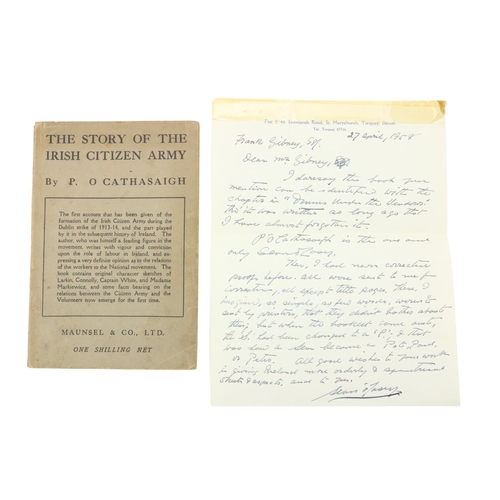 THE STORY OF THE
IRISH CITIZEN ARMY
By P. O CATHASAIGH
The first account that has been given of the
formation of the Irish Citizen Army during the
Dublin strike of 1913-14, and the part played
by it in the subsequent history of Ireland. The
author, who was himself a leading figure in the
movement, writes with vigour and conviction
upon the role of labour in Ireland, and ex-
pressing a very definite opinion as to the relation
of the workers to the National movement. The
book contains original character sketches of
Larkin, Connolly, Captain White, and Madame
Markievicz, and some facts bearing on the
relations between the Citizen Army and the
Volunteers now emerge for the first time.
MAUNSEL & CO., LTD.
ONE SHILLING NET
Road, St. Marychurch, Torquay, Devon
27 April, 1958
Frank Gibney, Esq.
Dear Mr Gibney,
I daresay the book you
mention can be identified with the
chapter in "Drums Under the Windows"
tho' it was written so long ago that
I have almost forgotten it.
P. O Cathasaigh is the one and
only
Then, I had never corrected
proofs before. All were sent to me for
correction, all except title page. These, I
imagined, so simple, so few words, were to
set by printers, that they didn't bother about
them; but when the booklet came out,
the S. had been changed to a 'P', & that
was how a Sean became a Patrick
or Peter. All good wishes to your work
in giving Ireland more orderly &
streets & aspects, and to you.
Sean O'Casey